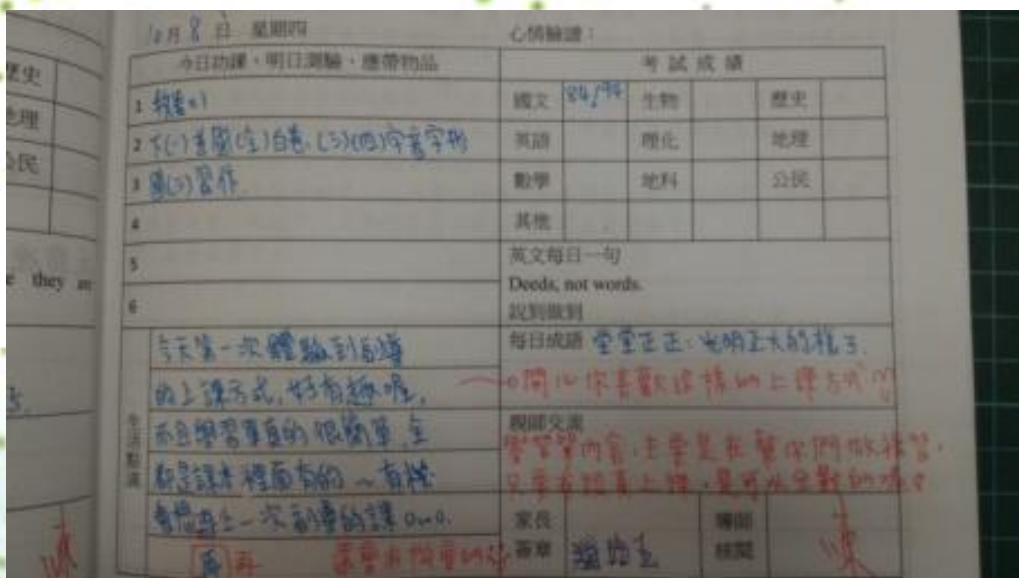 歷史
地理
公民
they are
10月8日 星期四
心情驗證:
今日功課、明日測驗、應帶物品
考試成績
1
2 下(一)
3 習作
4
5
6
國文 84/94 生物 歷史
英語 理化 地理
數學 地科 公民
其他
英文每日一句
Deeds, not words.
說到做到
每日成語 堂堂正正:光明正大的樣子.
開心你喜歡這樣的上課方式
親師交流
學習單內容,主要是在幫你們做複習,
只要有認真上課,是可以全對的唷
生活點滴
今天第一次體驗到
的上課方式,好有趣喔,
而且學習單真的很簡單,全
都是課本裡面有的~有機
會想再上一次 的課 OwO.
再
還會有機會的
家長簽章
導師核閱